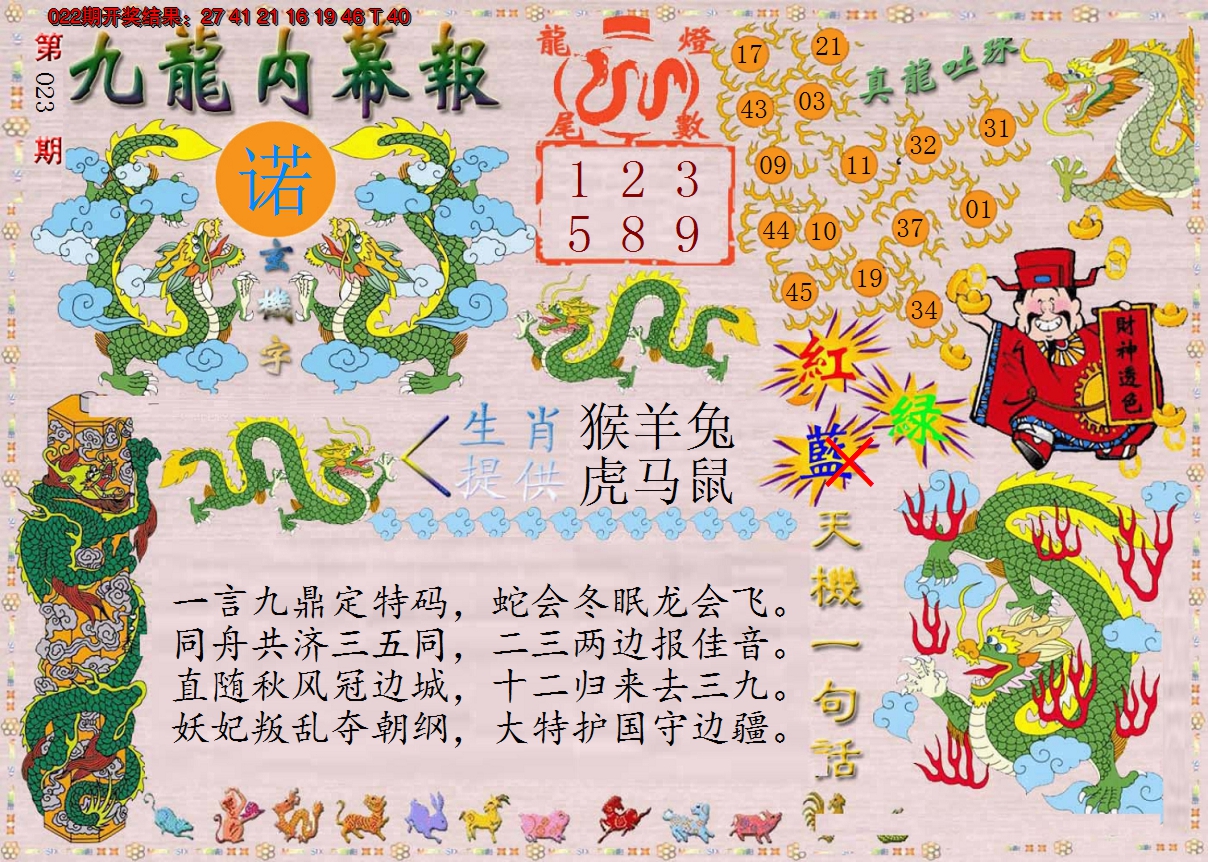 022期开奖结果：27 41 21 16 19 46 T 40
第023期
九龍内幕報
诺
玄機字
龍燈
尾數
1 2 3
5 8 9
17 21
43 03
09 11 32 31
44 10 37 01
45 19 34
真龍吐珠
財神透色
紅
綠
藍
生肖
提供
猴羊兔
虎马鼠
天機一句话
一言九鼎定特码，蛇会冬眠龙会飞。
同舟共济三五同，二三两边报佳音。
直随秋风冠边城，十二归来去三九。
妖妃叛乱夺朝纲，大特护国守边疆。